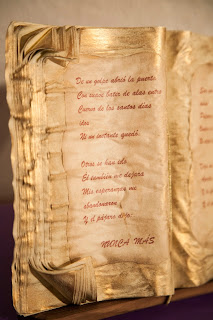 De un golpe abrió la puerta,
Con suave batir de alas entro
Cuervo de los santos días
idos
Ni un instante quedó,
Otros se han ido
El también me dejara
Mis esperanzas me
abandonaron
Y el pájaro dijo:
NUNCA MÁS